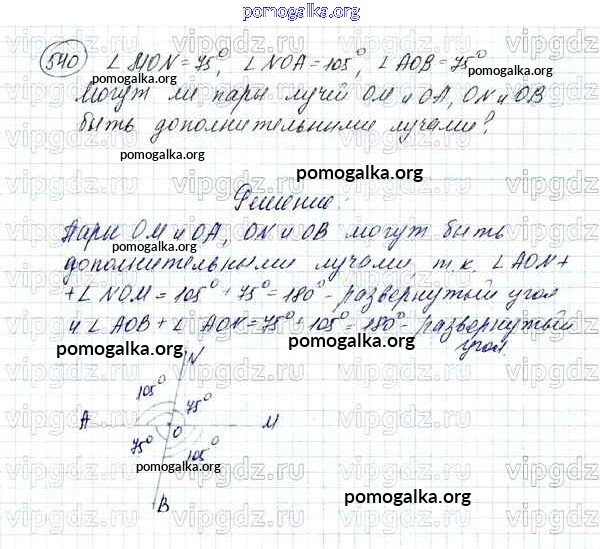 pomogalka.org
540 ∠ MON = 75°, ∠ NOA = 105°, ∠ AOB = 75°
pomogalka.org pomogalka.org
могут ли пары лучей OM и OA, ON и OB
быть дополнительными лучами?
pomogalka.org
pomogalka.org
Решение:
Пары OM и OA, ON и OB могут быть
pomogalka.org
дополнительными лучами, т.к. ∠ AON +
+ ∠ NOM = 105° + 75° = 180° - развернутый угол
и ∠ AOB + ∠ AOK = 75° + 105° = 180° - развернутый
угол.
pomogalka.org pomogalka.org
N
105° 75°
A O M
75° 105°
pomogalka.org
B
pomogalka.org
vipgdz.ru vipgdz.ru vipgdz.ru